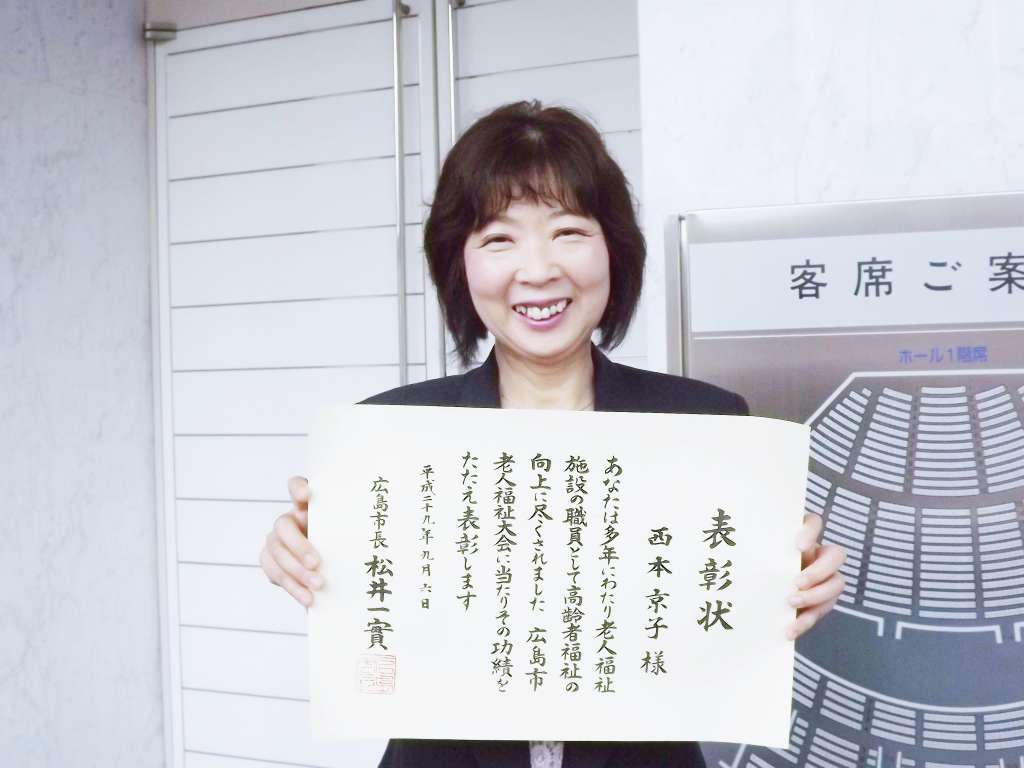 客席ご案
ホール1階席
表彰状
西本京子様
あなたは多年にわたり老人福祉
施設の職員として高齢者福祉の
向上に尽くされました 広島市
老人福祉大会に当たりその功績を
たたえ表彰します
平成二十九年九月六日
広島市長 松井一實